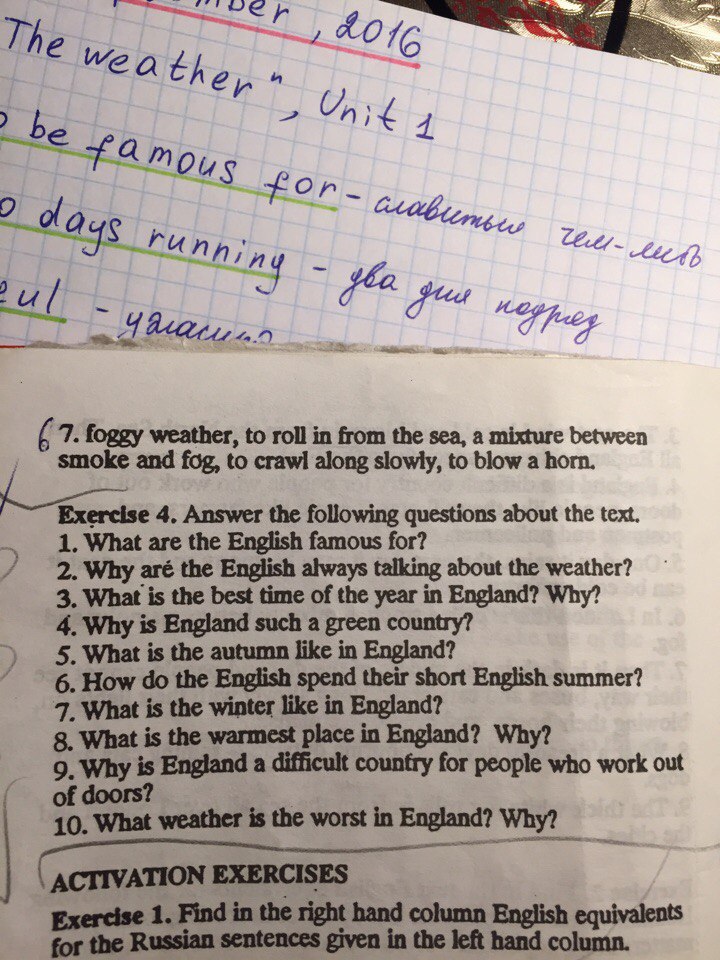 , 2016
The weather", Unit 1
be famous for - славиться чем-либо
days running - два дня подряд
6 7. foggy weather, to roll in from the sea, a mixture between
smoke and fog, to crawl along slowly, to blow a horn.
Exercise 4. Answer the following questions about the text.
1. What are the English famous for?
2. Why are the English always talking about the weather?
3. What is the best time of the year in England? Why?
4. Why is England such a green country?
5. What is the autumn like in England?
6. How do the English spend their short English summer?
7. What is the winter like in England?
8. What is the warmest place in England? Why?
9. Why is England a difficult country for people who work out
of doors?
10. What weather is the worst in England? Why?
ACTIVATION EXERCISES
Exercise 1. Find in the right hand column English equivalents
for the Russian sentences given in the left hand column.